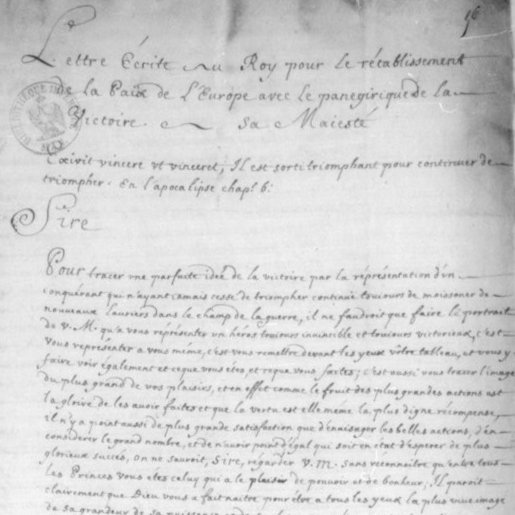 96
Lettre Ecrite au Roy pour le rétablissement
de la Paix de L'Europe avec le panegirique de la
Victoire de sa Maiesté
Exivit vincere vt vinceret, Il est sorti triomphant pour continuer de
triompher. En l'apocalipse chap. 6.
Sire
Pour tracer vne parfaite idée de la victoire par la répresentation d'vn
conquérant qui n'ayant iamais cessé de triompher continue touiours de moissoner de
nouueaux lauriers dans le champ de la guerre, il ne faudroit que faire le portrait
de V. M. qu'a vous répresenter vn héros touiours inuincible et touiours victorieux, c'est
vous répresenter a vous même, c'est vous remettre deuant les yeux vôtre tableau, et vous y
faire voir également et ce que vous etes et ce que vous faites; c'est aussi vous tracer l'image
du plus grand de vos plaisirs, et en effet comme le fruit des plus grandes actions est
la gloire de les auoir faites et que la vertu est elle meme la plus digne récompense,
il n'y a point aussi de plus grande satisfaction que d'enuisager les belles actions, d'en
considerer le grand nombre, et de n'auoir point d'égal qui soit en etat d'esperer de plus
glorieux succès, on ne sauroit, Sire, régarder V. M. sans reconnaitre qu'entre tous
les Princes vous etes celuy qui a le plaisir de pouuoir et de bonheur, Il paroit
clairement que Dieu vous a fait naitre pour étre a tous les yeux la plus viue image
de sa grandeur de sa puissance